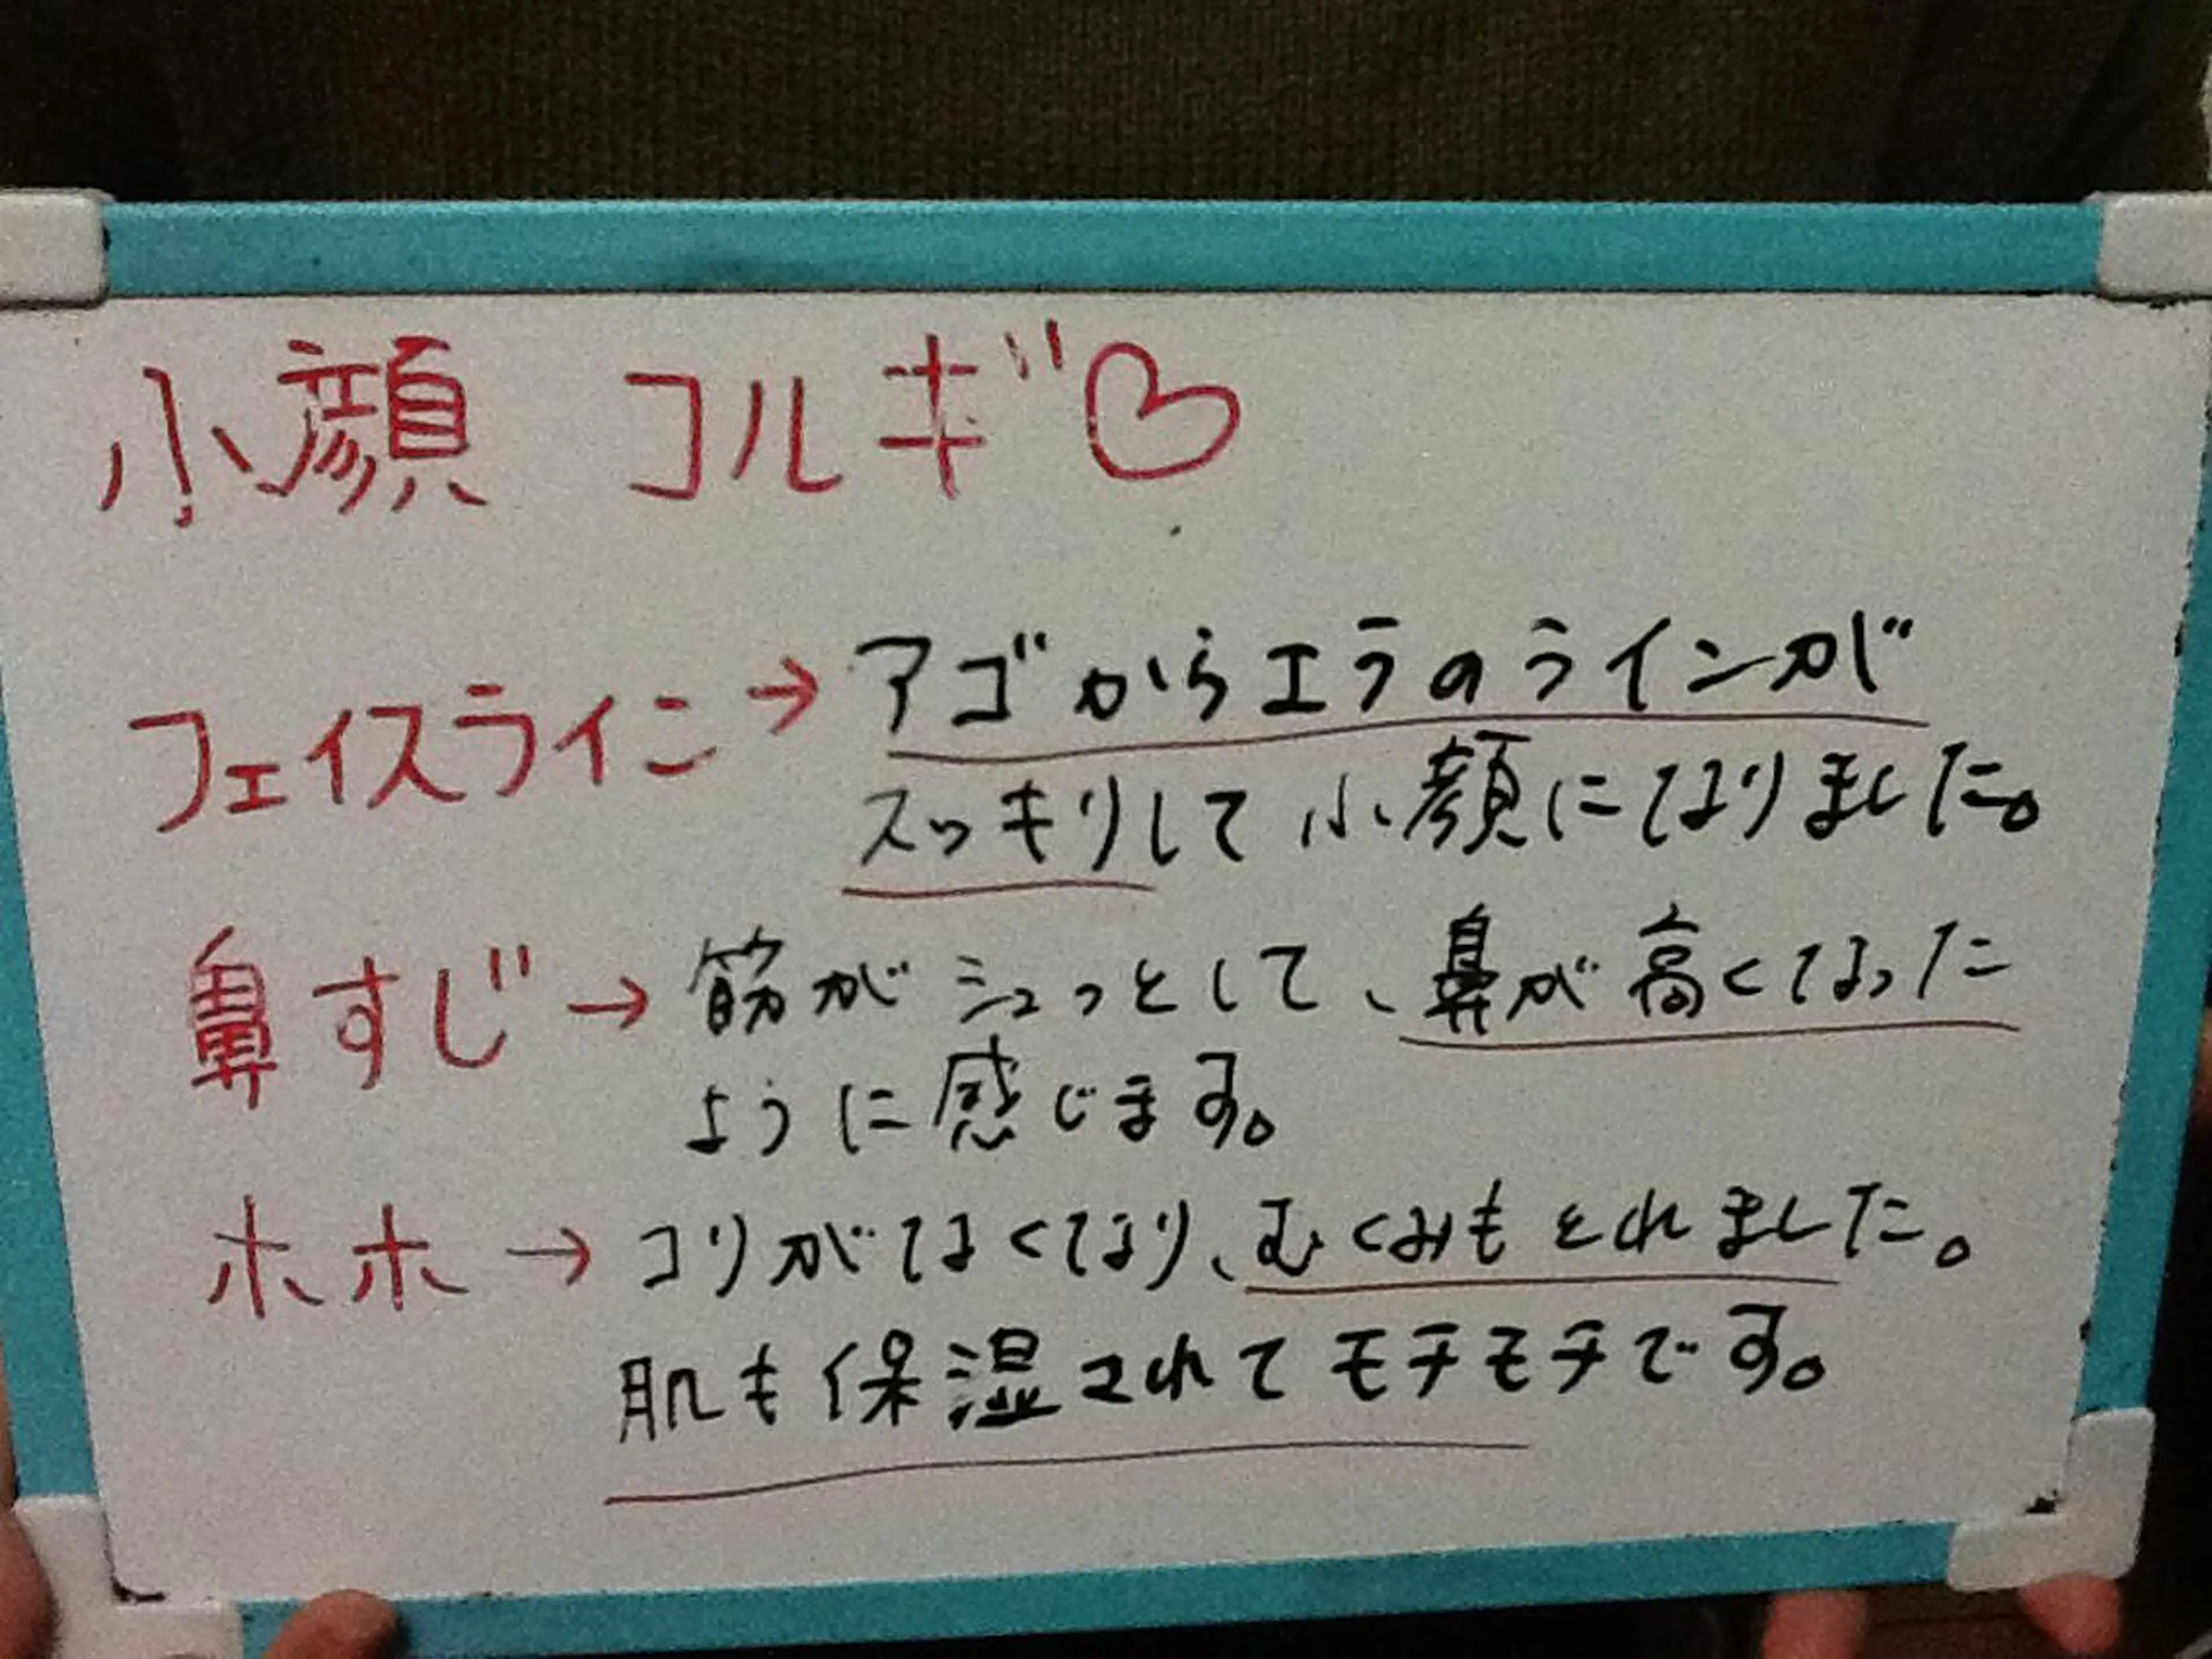 小顔 コルギ♡
フェイスライン→アゴからエラのラインが
スッキリして小顔になりました。
鼻すじ→筋がシュっとして、鼻が高くなった
ように感じます。
ホホ→コリがなくなり、むくみもとれました。
肌も保湿されてモチモチです。